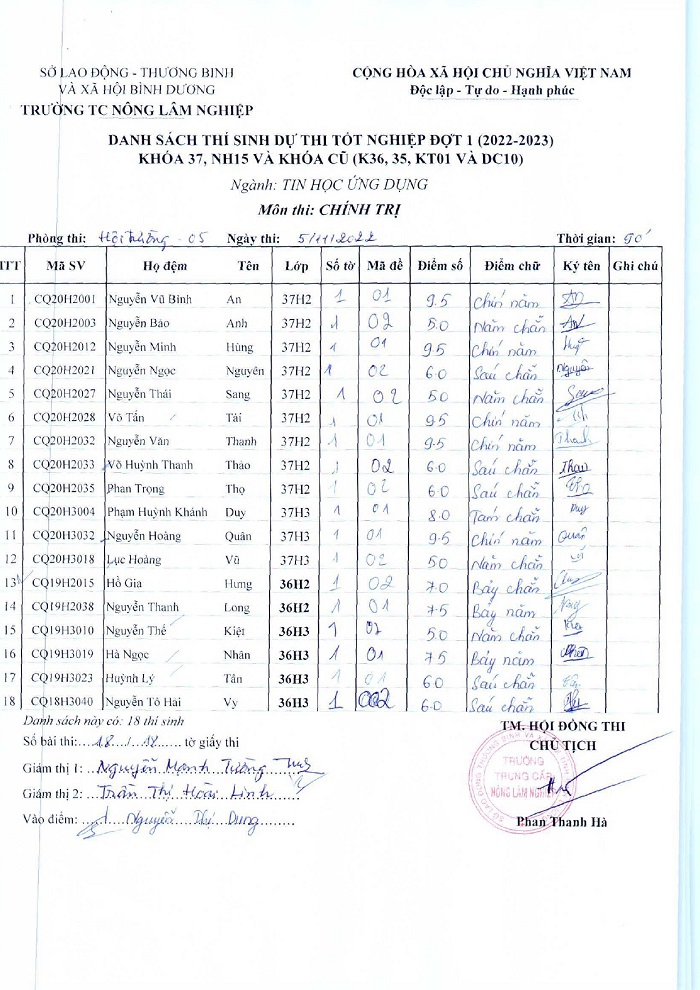 SỞ LAO ĐỘNG - THƯƠNG BINH
VÀ XÃ HỘI BÌNH DƯƠNG
TRƯỜNG TC NÔNG LÂM NGHIỆP
CỘNG HÒA XÃ HỘI CHỦ NGHĨA VIỆT NAM
Độc lập - Tự do - Hạnh phúc
DANH SÁCH THÍ SINH DỰ THI TỐT NGHIỆP ĐỢT 1 (2022-2023)
KHÓA 37, NH15 VÀ KHÓA CŨ (K36, 35, KT01 VÀ DC10)
Ngành: TIN HỌC ỨNG DỤNG
Môn thi: CHÍNH TRỊ
Phòng thi: Hội trường - 05 Ngày thi: 5/11/2022 Thời gian: 90'
TT Mã SV Họ đệm Tên Lớp Số tờ Mã đề Điểm số Điểm chữ Ký tên Ghi chú
1 CQ20H2001 Nguyễn Vũ Bình An 37H2 1 01 9.5 Chín năm An
2 CQ20H2003 Nguyễn Bảo Anh 37H2 1 02 5.0 Năm chẵn Anh
3 CQ20H2012 Nguyễn Minh Hùng 37H2 1 01 9.5 Chín năm
4 CQ20H2021 Nguyễn Ngọc Nguyên 37H2 1 02 6.0 Sáu chẵn Nguyên
5 CQ20H2027 Nguyễn Thái Sang 37H2 1 02 5.0 Năm chẵn Sang
6 CQ20H2028 Võ Tấn Tài 37H2 1 01 9.5 Chín năm
7 CQ20H2032 Nguyễn Văn Thanh 37H2 1 01 9.5 Chín năm Thanh
8 CQ20H2033 Võ Huỳnh Thanh Thảo 37H2 1 02 6.0 Sáu chẵn Thảo
9 CQ20H2035 Phan Trọng Thọ 37H2 1 02 6.0 Sáu chẵn
10 CQ20H3004 Phạm Huỳnh Khánh Duy 37H3 1 01 8.0 Tám chẵn Duy
11 CQ20H3032 Nguyễn Hoàng Quân 37H3 1 01 9.5 Chín năm Quân
12 CQ20H3018 Lục Hoàng Vũ 37H3 1 02 5.0 Năm chẵn
13 CQ19H2015 Hồ Gia Hưng 36H2 1 02 7.0 Bảy chẵn
14 CQ19H2038 Nguyễn Thanh Long 36H2 1 01 7.5 Bảy năm
15 CQ19H3010 Nguyễn Thế Kiệt 36H3 1 02 5.0 Năm chẵn
16 CQ19H3019 Hà Ngọc Nhân 36H3 1 01 7.5 Bảy năm
17 CQ19H3023 Huỳnh Lý Tân 36H3 1 01 6.0 Sáu chẵn
18 CQ18H3040 Nguyễn Tô Hải Vy 36H3 1 002 6.0 Sáu chẵn
Danh sách này có: 18 thí sinh
Số bài thi:...18.../...18...... tờ giấy thi
Giám thị 1: ...Nguyễn Mạnh Tường Thuỵ
Giám thị 2: ...Trần Thị Hoài Linh.......
Vào điểm: ......Nguyễn Thị Dung.......
TM. HỘI ĐỒNG THI
CHỦ TỊCH
SỞ LAO ĐỘNG THƯƠNG BINH VÀ X.H TỈNH
TRƯỜNG
TRUNG CẤP
NÔNG LÂM NGHIỆP
Phan Thanh Hà